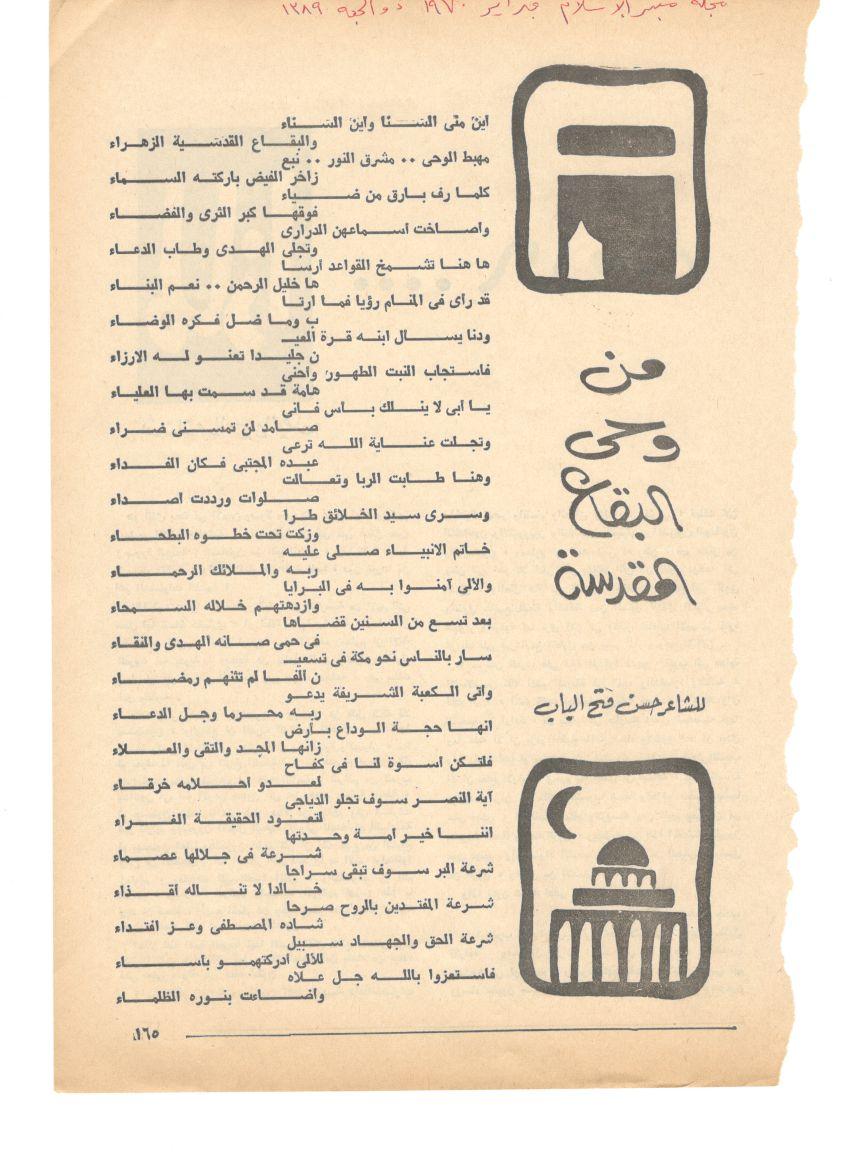 مجلة منبر الإسلام فبراير ١٩٧٠ ذو الحجة ١٣٨٩
من
وحى
البقاع
المقدسة
للشاعر حسن فتح الباب
اين منى السنا واين السناء
والبقاع القدسية الزهراء
مهبط الوحى .. مشرق النور .. نبع
زاخر الفيض باركته السماء
كلما رف بارق من ضياء
فوقها كبر الثرى والفضاء
وأصاخت أسماعهن الدرارى
وتجلى الهدى وطاب الدعاء
ها هنا تشمخ القواعد أرسا
ها خليل الرحمن .. نعم البناء
قد رأى فى المنام رؤيا فما ارتا
ب وما ضل فكره الوضاء
ودنا يسال ابنه قرة العيـ
ن جليدا تعنو له الارزاء
فاستجاب النبت الطهور وأحنى
هامة قد سمت بها العلياء
يا أبى لا ينلك بأس فانى
صامد لن تمسنى ضراء
وتجلت عناية الله ترعى
عبده المجتبى فكان الفداء
وهنا طابت الربا وتعالت
صلوات ورددت أصداء
وسرى سيد الخلائق طرا
وزكت تحت خطوه البطحاء
خاتم الانبياء صلى عليه
ربه والملائك الرحماء
والالى آمنوا به فى البرايا
وازدهتهم خلاله السمحاء
بعد تسع من السنين قضاها
فى حمى صانه الهدى والنقاء
سار بالناس نحو مكة فى تسعيـ
ن ألفا لم تثنهم رمضاء
وأتى الكعبة الشريفة يدعو
ربه محرما وجل الدعاء
انها حجة الوداع بأرض
زانها المجد والتقى والعلاء
فلتكن أسوة لنا فى كفاح
لعدو أحلامه خرقاء
آية النصر سوف تجلو الدياجى
لتعود الحقيقة الغراء
اننا خير أمة وحدتها
شرعة فى جلالها عصماء
شرعة البر سوف تبقى سراجا
خالدا لا تناله أقذاء
شرعة المفتدين بالروح صرحا
شاده المصطفى وعز افتداء
شرعة الحق والجهاد سبيل
للألى أدركتهمو بأساء
فاستعزوا بالله جل علاه
وأضاءت بنوره الظلماء
١٦٥